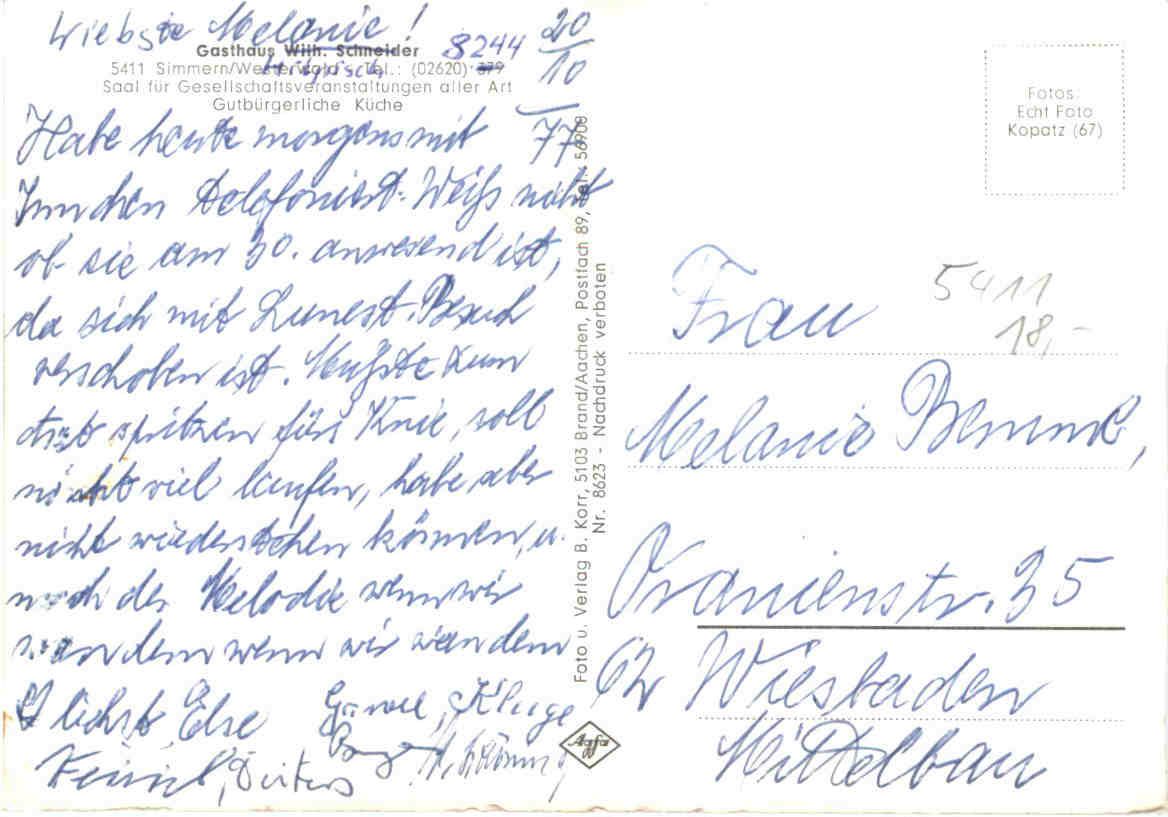 Liebste Melanie! 20
Gasthaus Wilh. Schneider 8244 10
5411 Simmern/Westerwald · Tel.: (02620) 379
Saal für Gesellschaftsveranstaltungen aller Art
Gutbürgerliche Küche
Habe heute morgens mit 77
telefoniert. Weiß nicht
ob sie am 30. anwesend ist,
da sich mit Besuch
verschoben ist. Mußte zum
Arzt spritzen fürs Knie, soll
nicht viel laufen, habe aber
nicht wiederstehen können, u.
nach der Melodie wenn wir
wandern wenn wir wandern
Else Kluge
Foto u. Verlag B. Korr, 5103 Brand/Aachen, Postfach 89, Tel. 56900
Nr. 8623 - Nachdruck verboten
Agfa
Fotos:
Echt Foto
Kopatz (67)
5411
18,-
Frau
Melanie
Oranienstr. 35
62 Wiesbaden
Mittelbau